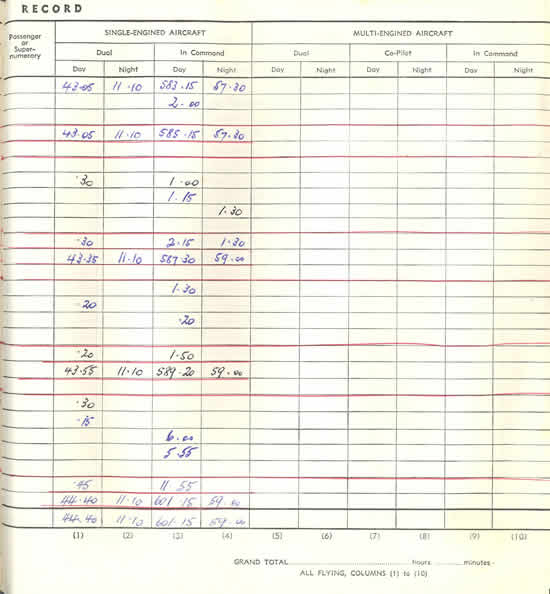 RECORD
Passenger or Super-numerary SINGLE-ENGINED AIRCRAFT MULTI-ENGINED AIRCRAFT
Dual In Command Dual Co-Pilot In Command
Day Night Day Night Day Night Day Night Day Night
43.05 11.10 583.15 57.30
2.00
43.05 11.10 585.15 57.30
.30 1.00
1.15
1.30
.30 2.15 1.30
43.35 11.10 587.30 59.00
1.30
.20
.20
.20 1.50
43.55 11.10 589.20 59.00
.30
.15
6.00
5.55
.45 11.55
44.40 11.10 601.15 59.00
44.40 11.10 601.15 59.00
(1) (2) (3) (4) (5) (6) (7) (8) (9) (10)
GRAND TOTAL hours minutes
ALL FLYING, COLUMNS (1) to (10)